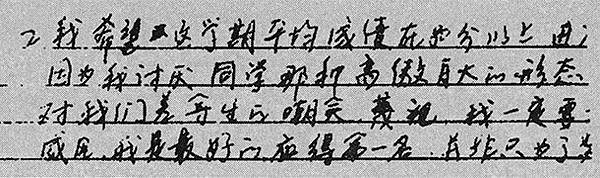 2 我希望这学期平均成绩在80分以上
因为我讨厌同学那种高傲自大的形态
对我们差等生的嘲笑、蔑视、我一定要
我是最好的应得第一名.并非只为了